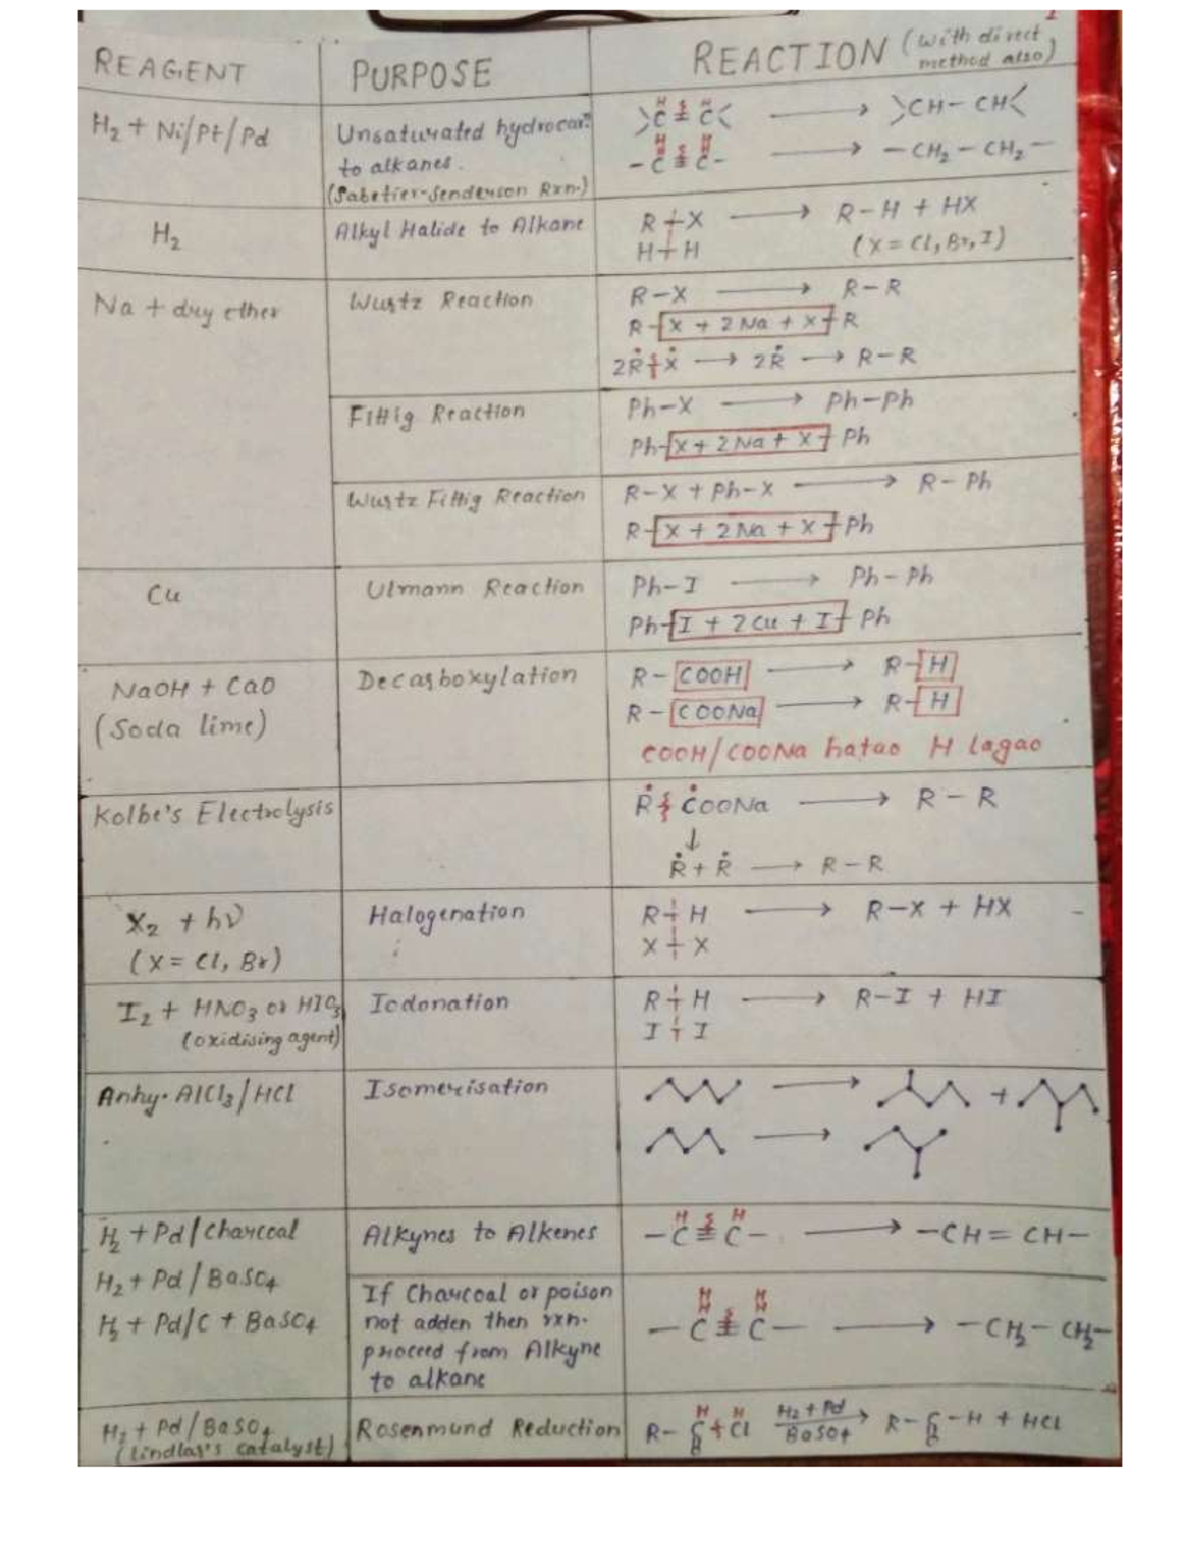 REAGENT PURPOSE REACTION (with direct method also)
H₂ + Ni/Pt/Pd
Unsaturated hydrocarn
to alkanes.
(Sabetier-Senderson Rxn.)
>C=C< → >CH-CH<
-C≡C- → -CH₂-CH₂-
H₂
Alkyl Halide to Alkane
R-X → R-H + HX
H-H (X = Cl, Br, I)
Na + dry ether
Wurtz Reaction
R-X → R-R
R-X + 2Na + X-R
2R-X → 2R → R-R
Fittig Reaction
Ph-X → Ph-Ph
Ph-X + 2Na + X-Ph
Wurtz Fittig Reaction
R-X + Ph-X → R-Ph
R-X + 2Na + X-Ph
Cu
Ulmann Reaction
Ph-I → Ph-Ph
Ph-I + 2Cu + I-Ph
NaOH + CaO
(Soda lime)
Decarboxylation
R-COOH → R-H
R-COONa → R-H
COOH/COONa hatao H lagao
Kolbe's Electrolysis
R-COONa → R-R
↓
R + R → R-R
X₂ + hν
(X = Cl, Br)
Halogenation
R-H → R-X + HX
X-X
I₂ + HNO₃ or HIO₃
(oxidising agent)
Iodonation
R-H → R-I + HI
I-I
Anhy. AlCl₃/HCl
Isomerisation
→ +
→
H₂ + Pd/Charcoal
H₂ + Pd/BaSO₄
H₂ + Pd/C + BaSO₄
Alkynes to Alkenes
H H
-C≡C- → -CH=CH-
If Charcoal or poison
not adden then rxn.
proceed from Alkyne
to alkane
H H
H H
-C≡C- → -CH₂-CH₂-
H₂ + Pd/BaSO₄
(Lindlar's catalyst)
Rosenmund Reduction
H H
R-C-Cl H₂+Pd → R-C-H + HCl
O BaSO₄ O